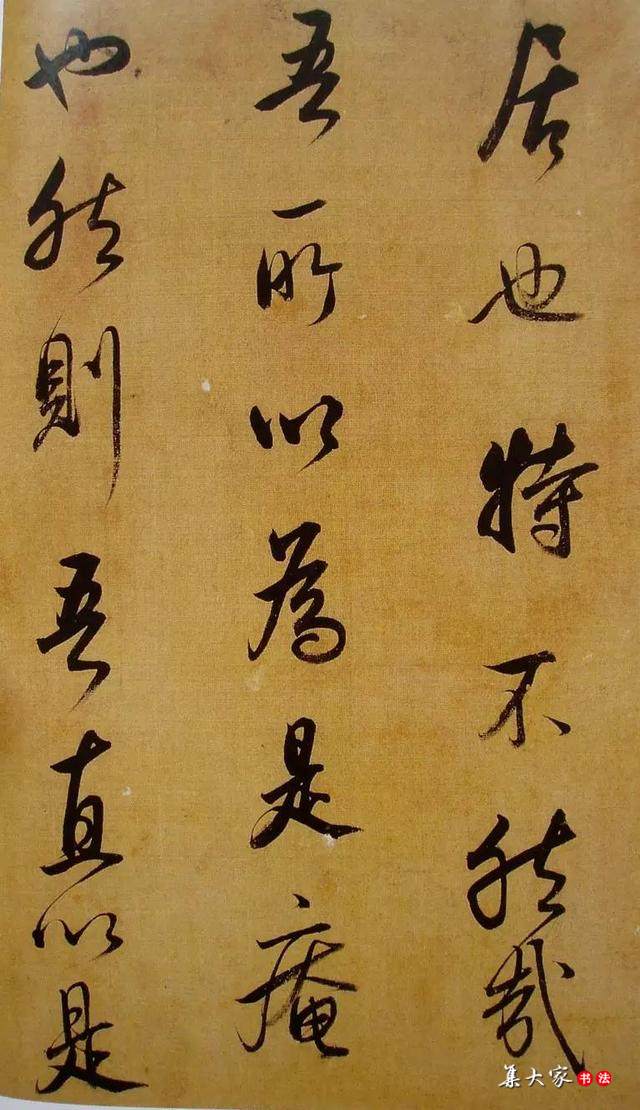 居也特不然哉
吾所以為是庵
也然則吾直以是
集大家书法